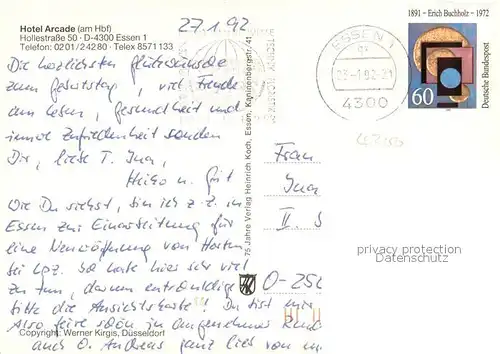 Hotel Arcade (am Hbf)
Hollestraße 50 · D-4300 Essen 1
Telefon: 0201/24280 · Telex 8571133
27.1.92
Die herzlichsten Glückwünsche
zum Geburtstag, viel Freude
am Leben, Gesundheit und
immer Zufriedenheit senden
Dir, liebe T. Ina,
Heiko u.
Wie Du siehst, bin ich z. Z. in
Essen zur Einarbeitung für
eine Neueröffnung von Horten
bei Lpz. Ich habe hier sehr viel
zu tun, darum entschuldige
bitte die Ansichtskarte! Du bist mir
Also feire schön in angenehmer
auch O. Andreas ganz lieb von
Copyright: Werner Kirgis, Düsseldorf
75 Jahre Verlag Heinrich Koch, Essen, Kaninenbergstr. 41
ESSEN 1
4300
1891 – Erich Buchholz – 1972
Deutsche Bundespost
60
Frau
Ina
II. S
O-25
privacy protection
Datenschutz